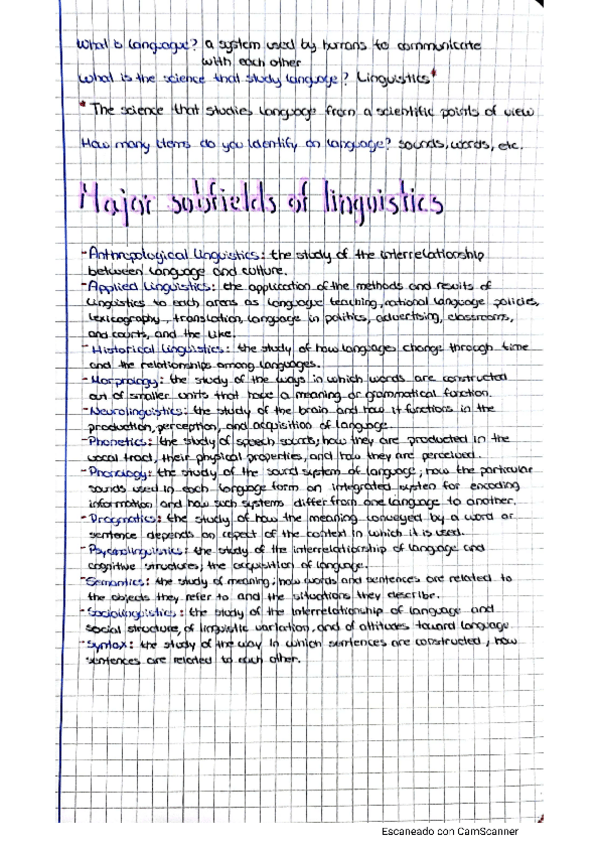 What is language? a system used by humans to communicate
with each other
What is the science that study language? Linguistics*
* The science that studies language from a scientific points of view
How many items do you identify on language? sounds, words, etc.
Major subfields of linguistics
-Anthropological Linguistics: the study of the interrelationship
between language and culture.
-Applied Linguistics: the application of the methods and results of
Linguistics to each areas as language teaching, national language policies,
lexicography, translation, language in politics, advertising, classrooms,
and courts, and the like.
-Historical Linguistics: the study of how languages change through time
and the relationships among languages.
-Morphology: the study of the ways in which words are constructed
out of smaller units that have a meaning or grammatical function.
-Neurolinguistics: the study of the brain and how it functions in the
production, perception, and acquisition of language.
-Phonetics: the study of speech sounds; how they are producted in the
vocal tract, their physical properties, and how they are perceived.
-Phonology: the study of the sound system of language; how the particular
sounds used in each language form an integrated system for encoding
information and how such systems differ from one language to another.
-Pragmatics: the study of how the meaning conveyed by a word or
sentence depends on aspect of the context in which it is used.
-Psycholinguistics: the study of the interrelationship of language and
cognitive structures; the acquisition of language.
-Semantics: the study of meaning; how words and sentences are related to
the objects they refer to and the situations they describe.
-Sociolinguistics: the study of the interrelationship of language and
social structure, of linguistic variation, and of attitudes toward language
-Syntax: the study of the way in which sentences are constructed; how
sentences are related to each other.
Escaneado con CamScanner